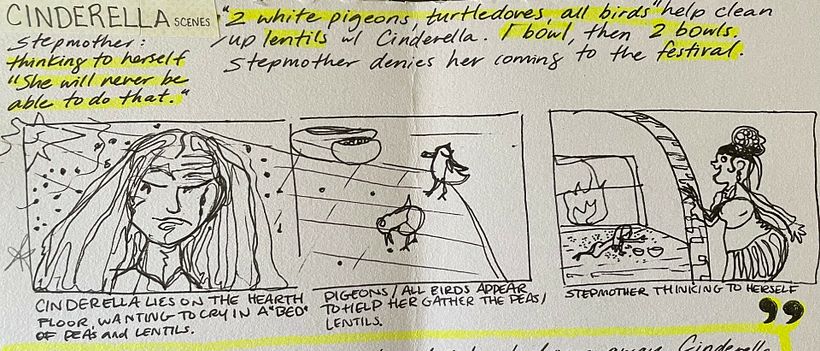 CINDERELLA SCENES
"2 white pigeons, turtledoves, all birds" help clean
up lentils w/ Cinderella. 1 bowl, then 2 bowls.
Stepmother denies her coming to the festival.
Stepmother:
thinking to herself
"She will never be
able to do that."
CINDERELLA LIES ON THE HEARTH
FLOOR, WANTING TO CRY IN A "BED"
OF PEAS and LENTILS.
PIGEONS/ALL BIRDS APPEAR
TO HELP HER GATHER THE PEAS/
LENTILS.
STEPMOTHER THINKING TO HERSELF
"
away Cinderella